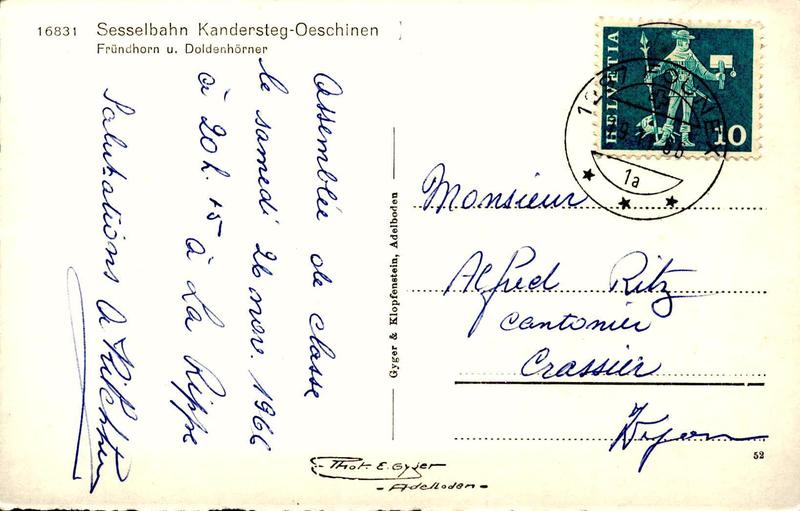 16831 Sesselbahn Kandersteg-Oeschinen
Fründhorn u. Doldenhörner
Assemblée de classe
le samedi 26 nov. 1966
à 20 h. 15 à La Rippe
Salutations
Gyger & Klopfenstein, Adelboden
HELVETIA
10
1a
Monsieur
Alfred Ritz
cantonier
Crassier
Nyon
52
Phot. E. Gyger
- Adelboden -